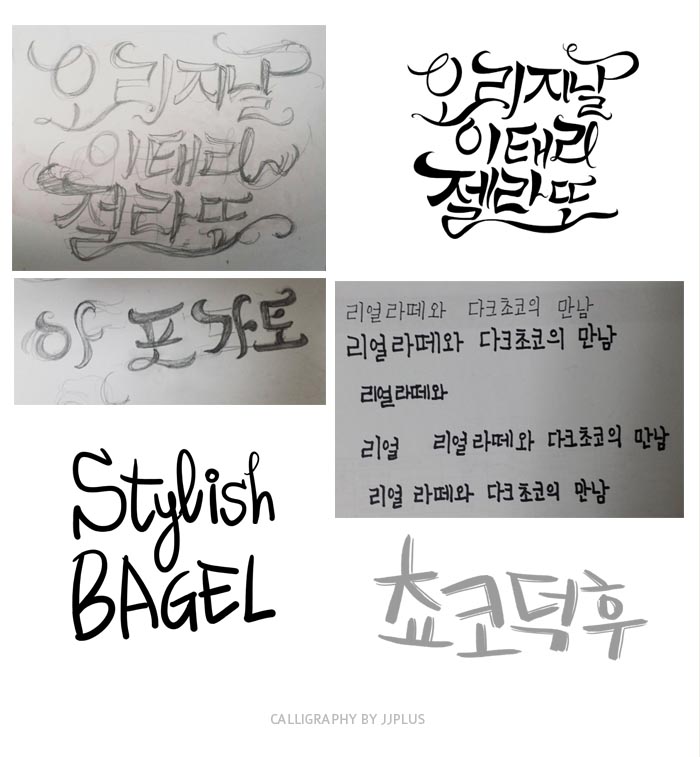 오리지날
이태리
젤라또
오리지날
이태리
젤라또
아포가토
리얼라떼와 다크초코의 만남
리얼라떼와 다크초코의 만남
리얼라떼와
리얼 리얼라떼와 다크초코의 만남
리얼 라떼와 다크초코의 만남
Stylish
BAGEL
쵸코덕후
CALLIGRAPHY BY JJPLUS